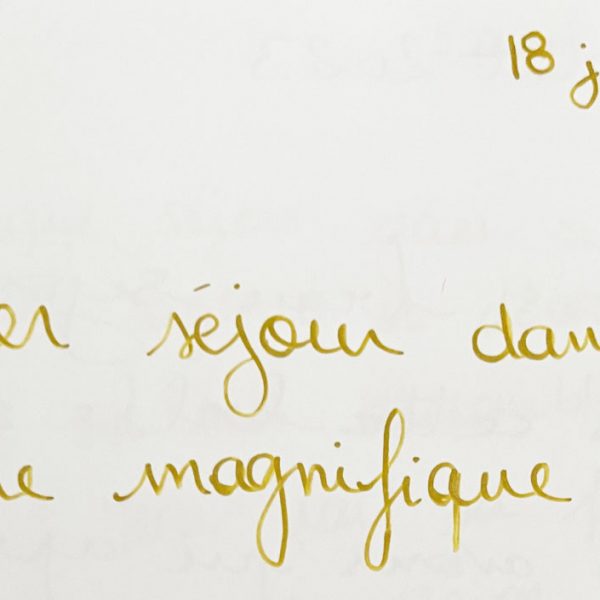 18 j
er séjour dan
ne magnifique